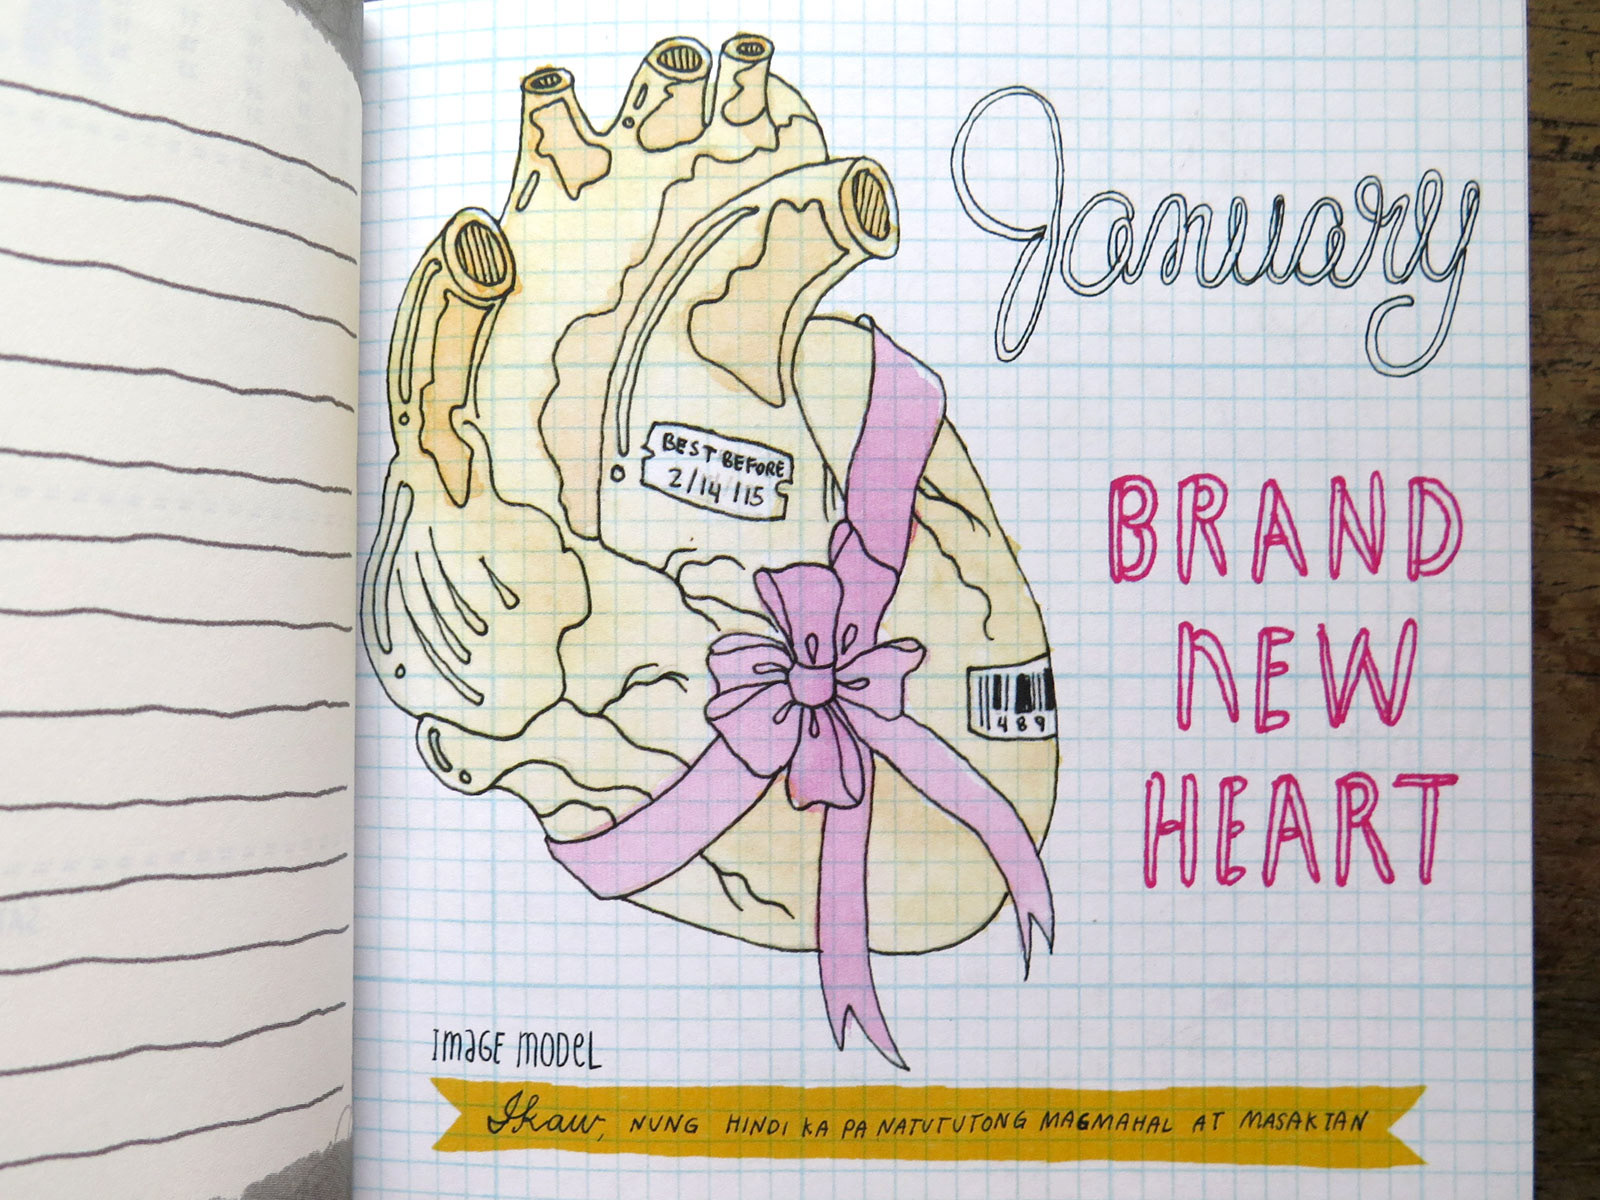 January
BEST BEFORE
2/14/15
BRAND
NEW
HEART
489
IMAGE MODEL
Ikaw, NUNG HINDI KA PA NATUTUTONG MAGMAHAL AT MASAKTAN